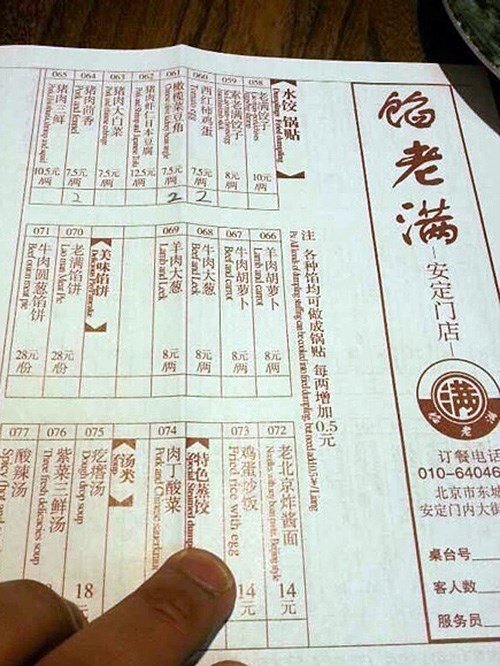 馅老满
—安定门店—
满
馅老满
订餐电话
010-64046
北京市东城
安定门内大街
桌台号
客人数
服务员
水饺、锅贴
058 老满饺子 10元/两
059 素老满饺子 8元/两
060 西红柿鸡蛋 Tomato egg 7.5元/两 2
061 橄榄菜豆角 7.5元/两 2
062 猪肉虾仁日本豆腐 12.5元/两
063 猪肉大白菜 7.5元/两
064 猪肉茴香 Pork and fennel 7.5元/两 2
065 猪肉三鲜 10.5元/两
注 各种馅均可做成锅贴 每两增加0.5元
066 羊肉胡萝卜 Lamb and carrot 8元/两
067 牛肉胡萝卜 Beef and carrot 8元/两
068 牛肉大葱 Beef and Leek 8元/两
069 羊肉大葱 Lamb and Leek 8元/两
美味馅饼
070 老满馅饼 Lao man Meat Pie 28元/份
071 牛肉圆葱馅饼 Beef onion meat pie 28元/份
072 老北京炸酱面 14元
073 鸡蛋炒饭 Fried rice with egg 14元
特色蒸饺
074 肉丁酸菜
汤类
Soup
075 疙瘩汤 Dough drop soup 18
076 紫菜三鲜汤
077 酸辣汤